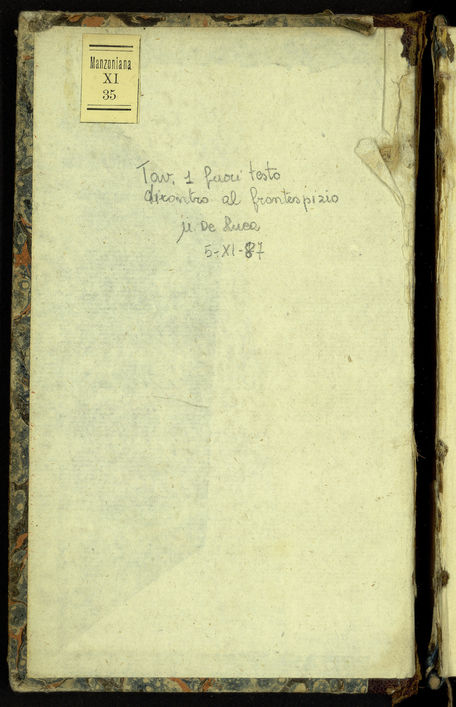 Manzoniana
XI
35
Tav. 1 fuori testo
dirontro al frontespizio
De Luca
5-XI-87